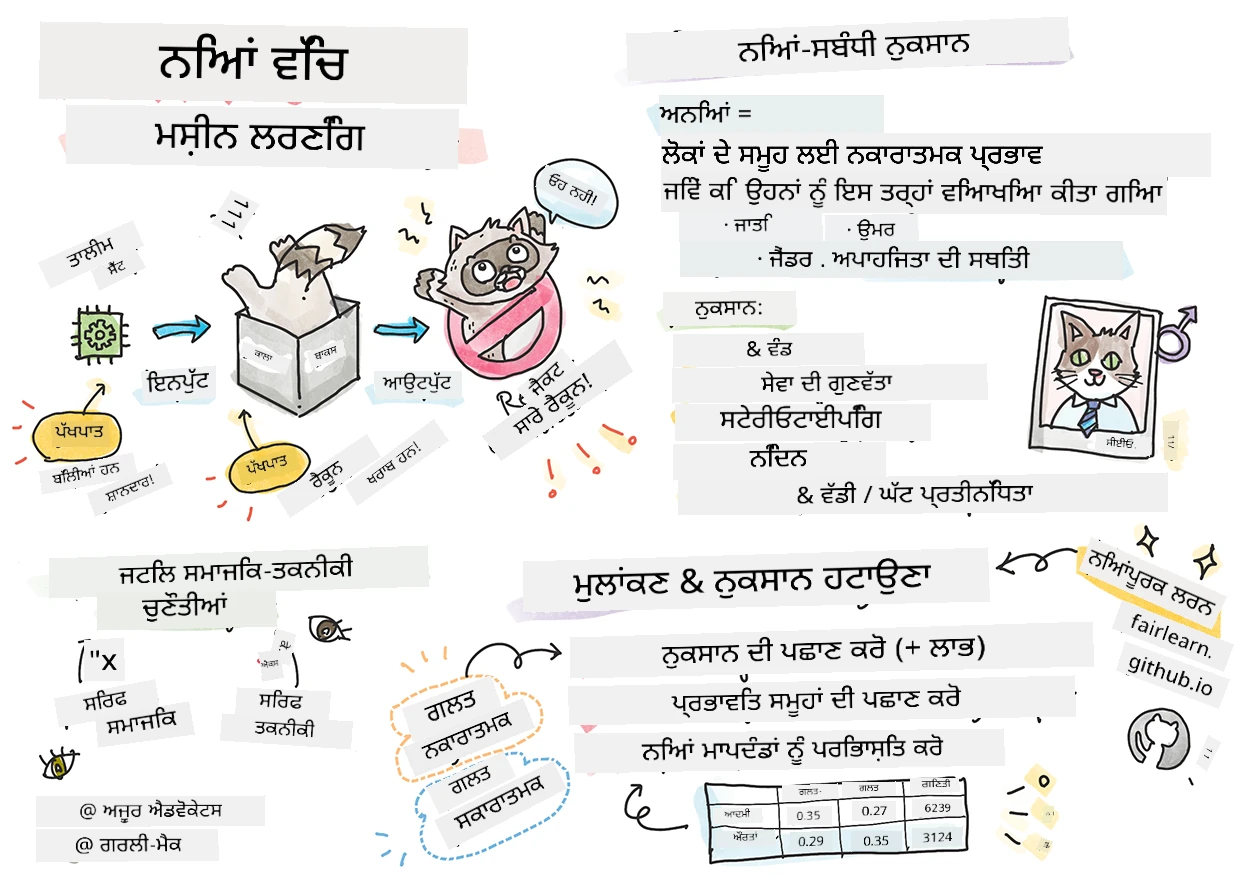 ਨਿਆਂ ਵਿੱਚ
ਮਸ਼ੀਨ ਲਰਣਿੰਗ
ਤਾਲੀਮ
ਸੈੱਟ
ਇਨਪੁੱਟ
ਕਾਲਾ
ਬਾਕਸ
ਆਉਟਪੁੱਟ
ਓਹ ਨਹੀਂ!
ਜੈਕਟ
ਸਾਰੇ ਰੈਕੂਨ!
ਪੱਖਪਾਤ
ਬਿੱਲੀਆਂ ਹਨ
ਸ਼ਾਨਦਾਰ!
ਪੱਖਪਾਤ
ਰੈਕੂਨ
ਖਰਾਬ ਹਨ!
ਨਿਆਂ-ਸਬੰਧੀ ਨੁਕਸਾਨ
ਅਨਿਆਂ =
ਲੋਕਾਂ ਦੇ ਸਮੂਹ ਲਈ ਨਕਾਰਾਤਮਕ ਪ੍ਰਭਾਵ
ਜਿਵੇਂ ਕਿ ਉਹਨਾਂ ਨੂੰ ਇਸ ਤਰ੍ਹਾਂ ਵਿਆਖਿਆ ਕੀਤਾ ਗਿਆ
· ਜਾਤਿ · ਉਮਰ
· ਜੈਂਡਰ . ਅਪਾਹਜਿਤਾ ਦੀ ਸਥਿਤੀ
ਨੁਕਸਾਨ:
& ਵੰਡ
ਸੇਵਾ ਦੀ ਗੁਣਵੱਤਾ
ਸਟੇਰੀਓਟਾਈਪਿੰਗ
ਨਿੰਦਨ
& ਵੱਡੀ / ਘੱਟ ਪ੍ਰਤੀਨਿਧਿਤਾ
ਸੀਈਓ.
ਜਟਿਲ ਸਮਾਜਿਕ-ਤਕਨੀਕੀ
ਚੁਣੌਤੀਆਂ
"x
ਸਿਰਫ
ਸਮਾਜਿਕ
ਸਿਰਫ
ਤਕਨੀਕੀ
@ ਅਜ਼ੂਰ ਐਡਵੋਕੇਟਸ
@ ਗਰਲੀ-ਮੈਕ
ਮੁਲਾਂਕਣ & ਨੁਕਸਾਨ ਹਟਾਉਣਾ
ਨੁਕਸਾਨ ਦੀ ਪਛਾਣ ਕਰੋ (+ ਲਾਭ)
ਪ੍ਰਭਾਵਿਤ ਸਮੂਹਾਂ ਦੀ ਪਛਾਣ ਕਰੋ
ਨਿਆਂ ਮਾਪਦੰਡਾਂ ਨੂੰ ਪਰਿਭਾਸ਼ਿਤ ਕਰੋ
ਗਲਤ
ਨਕਾਰਾਤਮਕ
ਗਲਤ
ਸਕਾਰਾਤਮਕ
ਗਲਤ· ਗਲਤ ਗਿਣਤੀ
ਆਦਮੀ 0.35 0.27 6239
ਔਰਤਾਂ 0.29 0.35 3124
ਨਿਆਂਪੂਰਕ ਲਰਨ
fairlearn.
github.io